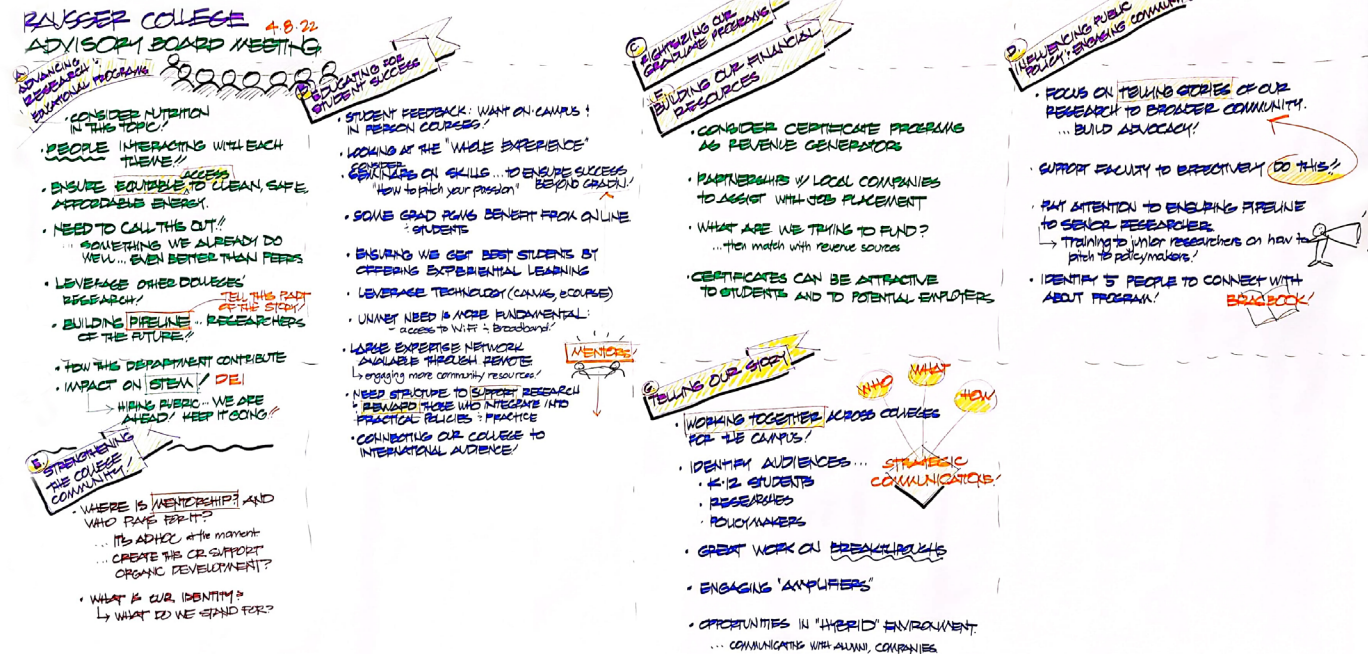 RAUSSER COLLEGE
4.8.22
ADVISORY BOARD MEETING
A
ADVANCING
RESEARCH &
EDUCATIONAL PROGRAMS
• CONSIDER NUTRITION
IN THIS TOPIC!
• PEOPLE INTERACTING WITH EACH
THEME!!
ACCESS
• ENSURE EQUITABLE TO CLEAN, SAFE,
AFFORDABLE ENERGY.
• NEED TO CALL THIS OUT!!
... SOMETHING WE ALREADY DO
WELL... EVEN BETTER THAN PEERS
• LEVERAGE OTHER COLLEGES'
RESEARCH!
TELL THIS PART
OF THE STORY!
• BUILDING PIPELINE ... RESEARCHERS
OF THE FUTURE!!
• HOW THIS DEPARTMENT CONTRIBUTE
• IMPACT ON STEM! DEI
HIRING RUBRIC... WE ARE
AHEAD! KEEP IT GOING!!
E.
STRENGTHENING
THE COLLEGE
COMMUNITY!
• WHERE IS MENTORSHIP? AND
WHO PAYS FOR IT?
... IT'S AD HOC at the moment
... CREATE THIS OR SUPPORT
ORGANIC DEVELOPMENT?
• WHAT IS OUR IDENTITY?
WHAT DO WE STAND FOR?
B
EDUCATING FOR
STUDENT SUCCESS
• STUDENT FEEDBACK: WANT ON-CAMPUS &
IN PERSON COURSES!
• LOOKING AT THE "WHOLE EXPERIENCE"
CONSIDER
SEMINARS ON SKILLS ... TO ENSURE SUCCESS
"How to pitch your passion" BEYOND GRAD'N!
• SOME GRAD PGMS BENEFIT FROM ONLINE
& STUDENTS
• ENSURING WE GET BEST STUDENTS BY
OFFERING EXPERIENTIAL LEARNING
• LEVERAGE TECHNOLOGY (CANVAS, ECOURSE)
• UNMET NEED IS MORE FUNDAMENTAL:
- access to WiFi & Broadband!
• LARGE EXPERTISE NETWORK
AVAILABLE THROUGH REMOTE
engaging more community resources!
MENTORS!
• NEED STRUCTURE TO SUPPORT RESEARCH
& REWARD THOSE WHO INTEGRATE INTO
PRACTICAL POLICIES & PRACTICE
• CONNECTING OUR COLLEGE TO
INTERNATIONAL AUDIENCE!
C
RIGHTSIZING OUR
GRADUATE PROGRAMS
F.
BUILDING OUR FINANCIAL
RESOURCES
• CONSIDER CERTIFICATE PROGRAMS
AS REVENUE GENERATORS
• PARTNERSHIPS W/ LOCAL COMPANIES
TO ASSIST WITH JOB PLACEMENT
• WHAT ARE WE TRYING TO FUND?
... then match with revenue sources
• CERTIFICATES CAN BE ATTRACTIVE
TO STUDENTS AND TO POTENTIAL EMPLOYERS
G
TELLING OUR STORY
WHO
WHAT
HOW
• WORKING TOGETHER ACROSS COLLEGES
FOR THE CAMPUS!
STRATEGIC
COMMUNICATIONS!
• IDENTIFY AUDIENCES ...
• K-12 STUDENTS
• RESEARCHES
• POLICYMAKERS
• GREAT WORK ON BREAKTHROUGHS
• ENGAGING "AMPLIFIERS"
• OPPORTUNITIES IN "HYBRID" ENVIRONMENT.
... COMMUNICATING WITH ALUMNI, COMPANIES
D
INFLUENCING PUBLIC
POLICY & ENGAGING COMMUNIT
• FOCUS ON TELLING STORIES OF OUR
RESEARCH TO BROADER COMMUNITY.
... BUILD ADVOCACY!
• SUPPORT FACULTY TO EFFECTIVELY DO THIS!!
• PAY ATTENTION TO ENSURING PIPELINE
TO SENIOR RESEARCHERS
Training to junior researchers on how to
pitch to policymakers!
• IDENTIFY 5 PEOPLE TO CONNECT WITH
ABOUT PROGRAM!
BRAGBOOK!